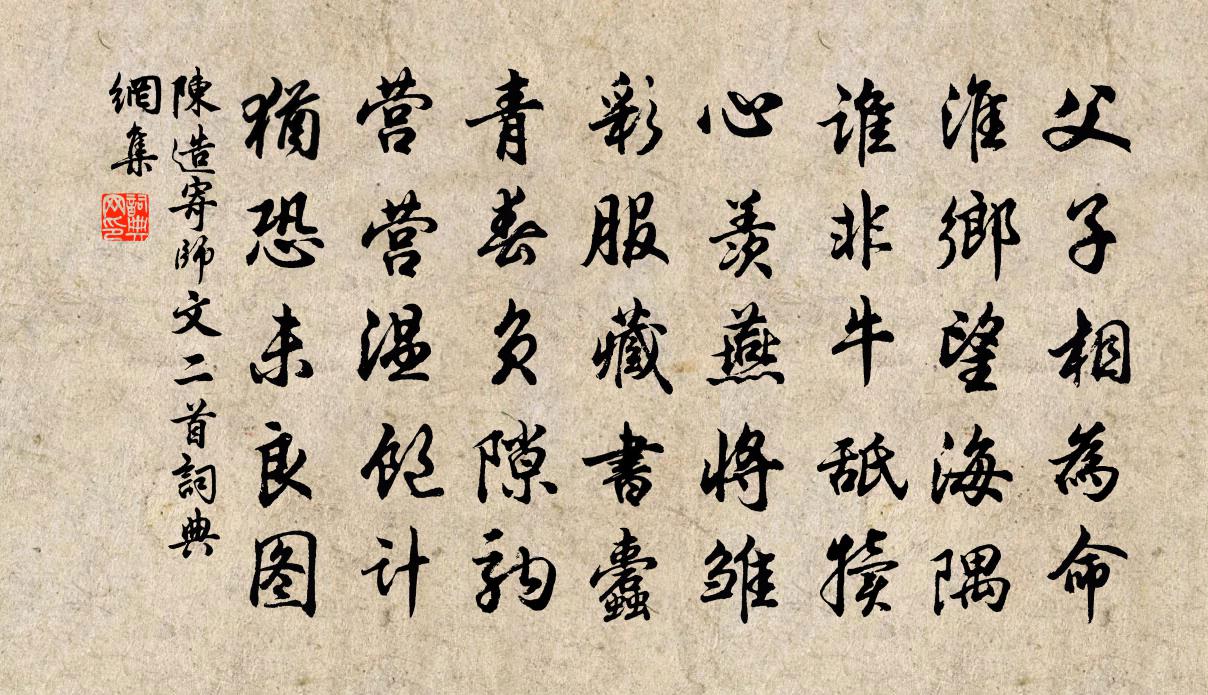 父子相為命
淮鄉望海隅
誰非牛舐犢
心羨燕將雏
彩服藏書蠹
青春負隙駒
营营温飽计
猶恐未良图
陳造寄師文二首詞典
網集
詞典
网印